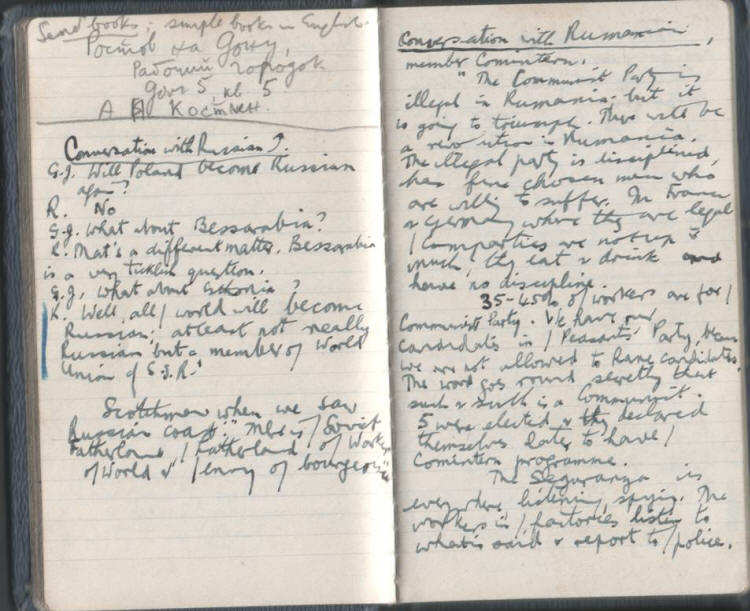 Send books; simple books in English.
Ростов на Дону,
Рабочий городок
дом 5 кв 5
А В Косткен.
Conversation with Russian J.
G.J. Will Poland become Russian
again?
R. No
G.J. What about Bessarabia?
R. That's a different matter. Bessarabia
is a very ticklish question.
G.J. What about Esthonia?
R. Well, all / world will become
Russian; at least not really
Russian but a member of World
Union of S.S.R.'
Scotchman when we saw
Russian coast: "There is / Soviet
Fatherland, / Fatherland of Workers
of World & / envy of bourgeoisie"
Conversation with Rumanian,
member Comintern.
"The Communist Party is
illegal in Rumania; but it
is going to triumph. There will be
a revolution in Rumania.
The illegal party is disciplined,
has fine chosen men who
are willing to suffer. In France
& Germany where they are legal
/ Comparties are not up to
much; they eat & drink and
have no discipline.
35-40% of workers are for /
Communist Party. We have our
candidates in / Peasants' Party,
we are not allowed to have candidates.
The word goes round secretly that
such & such is a Communist.
5 were elected & they declared
themselves later to have /
Comintern programme.
The Seguranza is
everywhere listening, spying. The
workers in / factories listen to
what is said & report to / police.